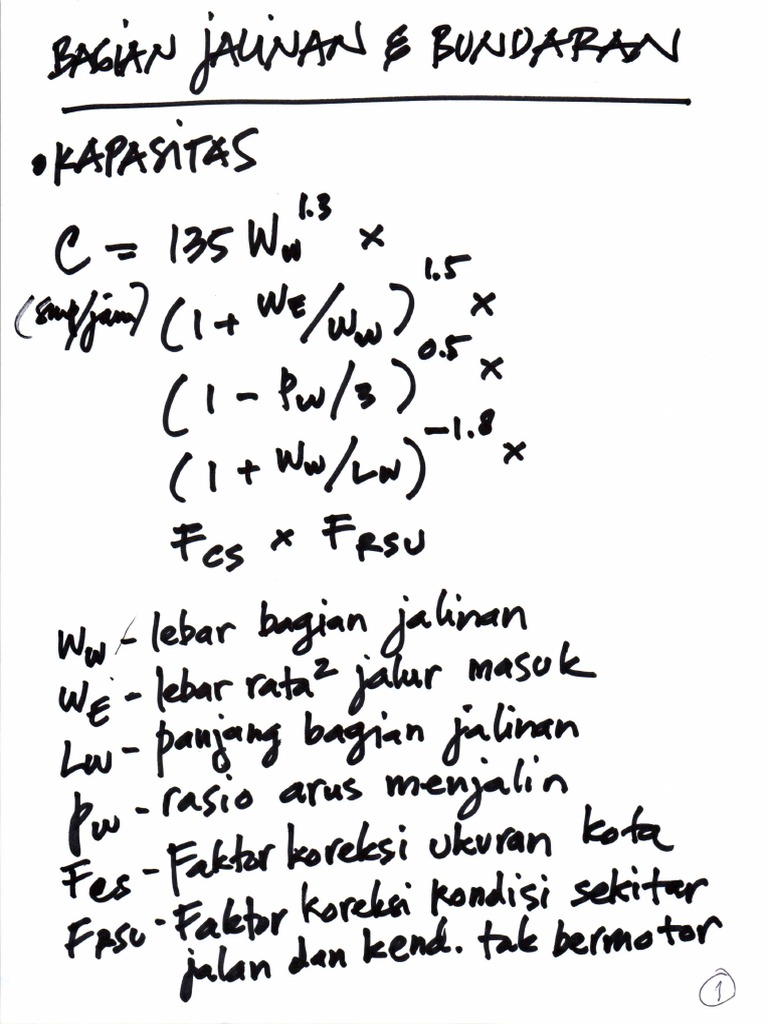 BAGIAN JALINAN & BUNDARAN
• KAPASITAS
C = 135 W_w^1.3 ×
(smp/jam) (1 + W_E/W_w)^1.5 ×
(1 - p_w/3)^0.5 ×
(1 + W_w/L_w)^-1.8 ×
F_CS × F_RSU
W_w - lebar bagian jalinan
W_E - lebar rata² jalur masuk
L_w - panjang bagian jalinan
p_w - rasio arus menjalin
F_CS - Faktor koreksi ukuran kota
F_RSU - Faktor koreksi kondisi sekitar
jalan dan kend. tak bermotor
1